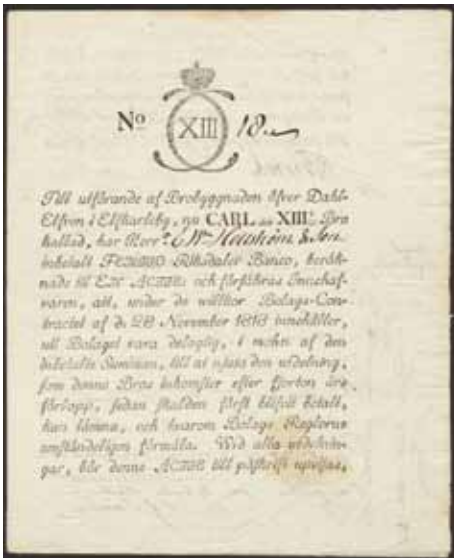 No XIII 18
Till utförande af Brobyggnaden öfver Dahl-
Elfven i Elfkarleby, nu CARL den XIII:s Bro
kallad, har Herr
inbetalt FEMTIO Riksdaler Banco, beräk-
nade til EN ACTIE; och förfäkras Innehaf-
varen, att, under de willkor Bolags-Con-
tractet af d. 28 November 1813 innehåller,
uti Bolaget vara delagtig, i mohn af den
inbetalte Summan, till at njuta den utdelning,
som denna Bros inkomster efter fjorton års
förlopp, sedan skulden först blifvit betalt,
kan lämna, och hwarom Bolags Reglorne
omständeligen förmäla. Wid alla utdelnin-
gar, bör denne ACTIE till påskrift upwisas,